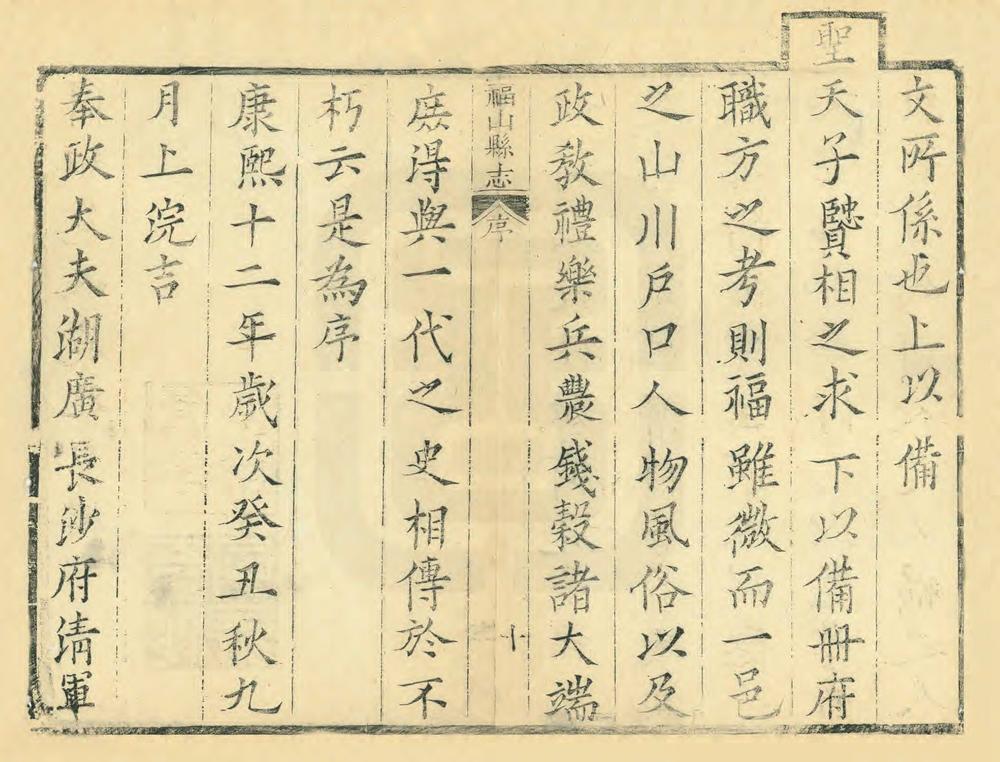 文所係也上以備
聖天子賢相之求下以備冊府
職方之考則福雖微而一邑
之山川戶口人物風俗以及
政教禮樂兵農錢穀諸大端
福山縣志
序
十
庻淂與一代之史相傳於不
朽云是為序
康熙十二年歲次癸丑秋九
月上浣吉
奉政大夫湖廣長沙府清軍